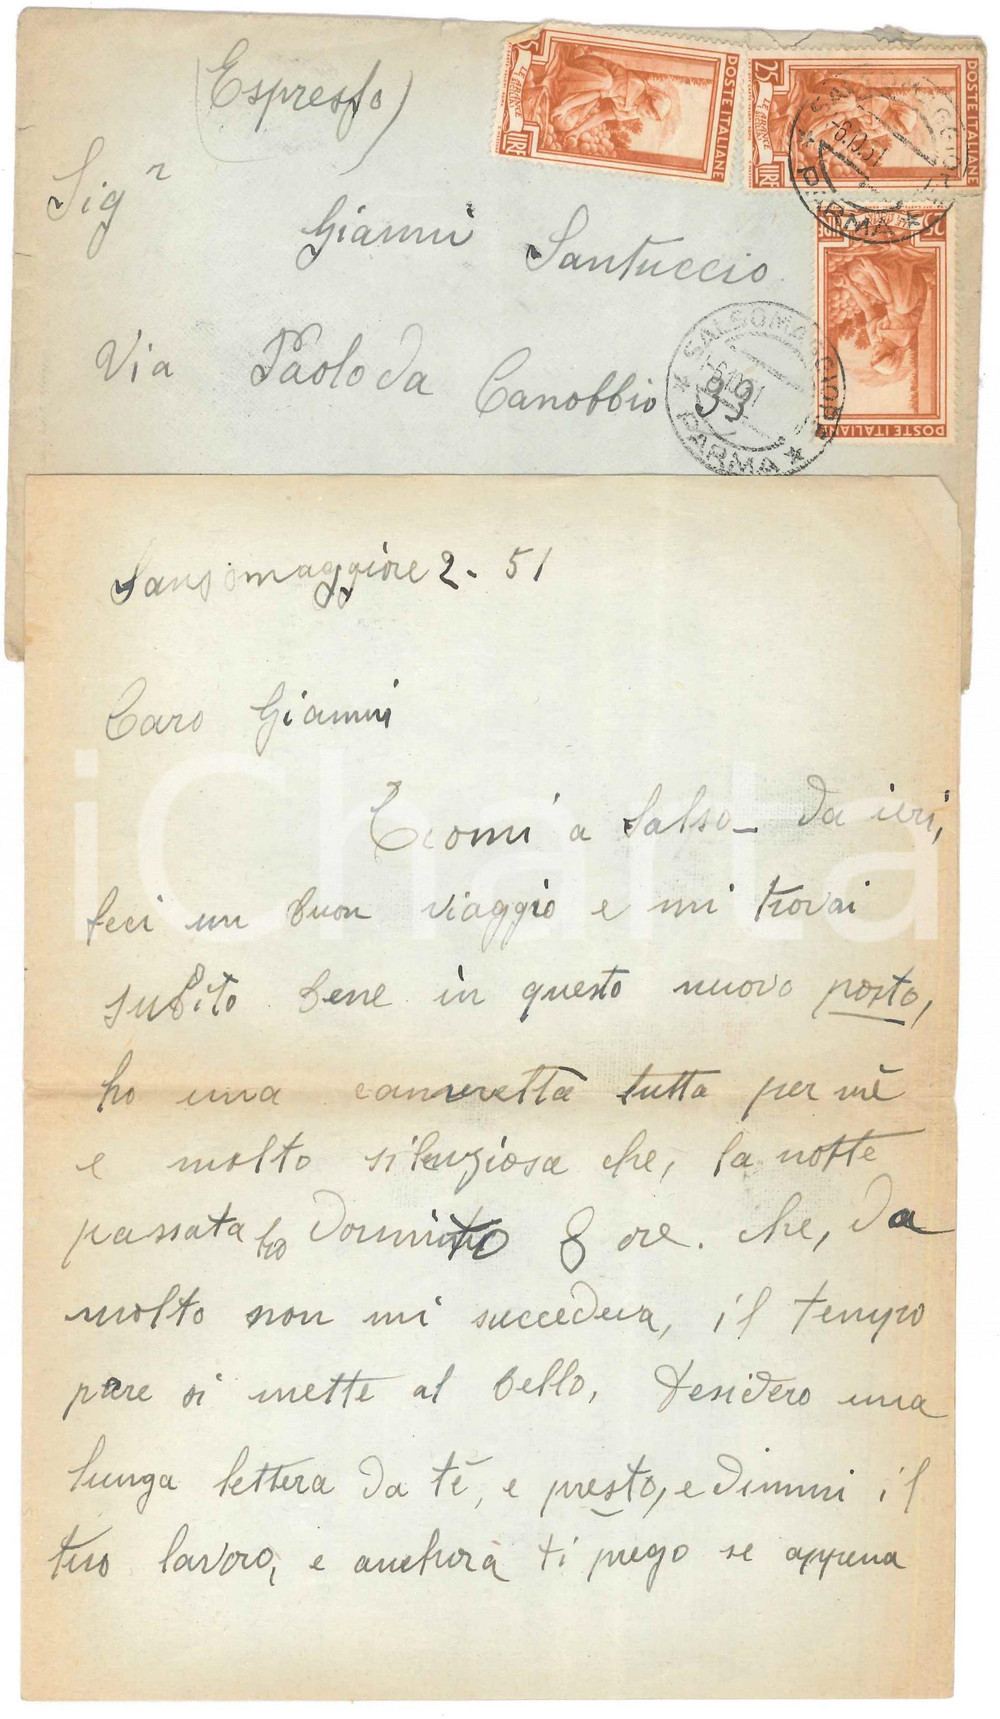 (Espresso)
Sigr
Gianni Santuccio
Via Paolo da Canobbio 33
POSTE ITALIANE
LIRE 25
POSTE ITALIANE
25 LIRE
POSTE ITALIANE
25
SALSOMAGGIORE
PARMA
SALSOMAGGIORE
PARMA
Sansomaggiore 2 - 51
Caro Gianni
Eccomi a Salso - da ieri,
feci un buon viaggio e mi trovai
subito bene in questo nuovo posto,
ho una cameretta tutta per mè
e molto silenziosa che, la notte
passata ho dormito 8 ore. che, da
molto non mi succedeva, il tempo
pare si mette al bello, desidero una
lunga lettera da tè, e presto, e dimmi il
tuo lavoro, e anchora ti prego se appena
iCharta